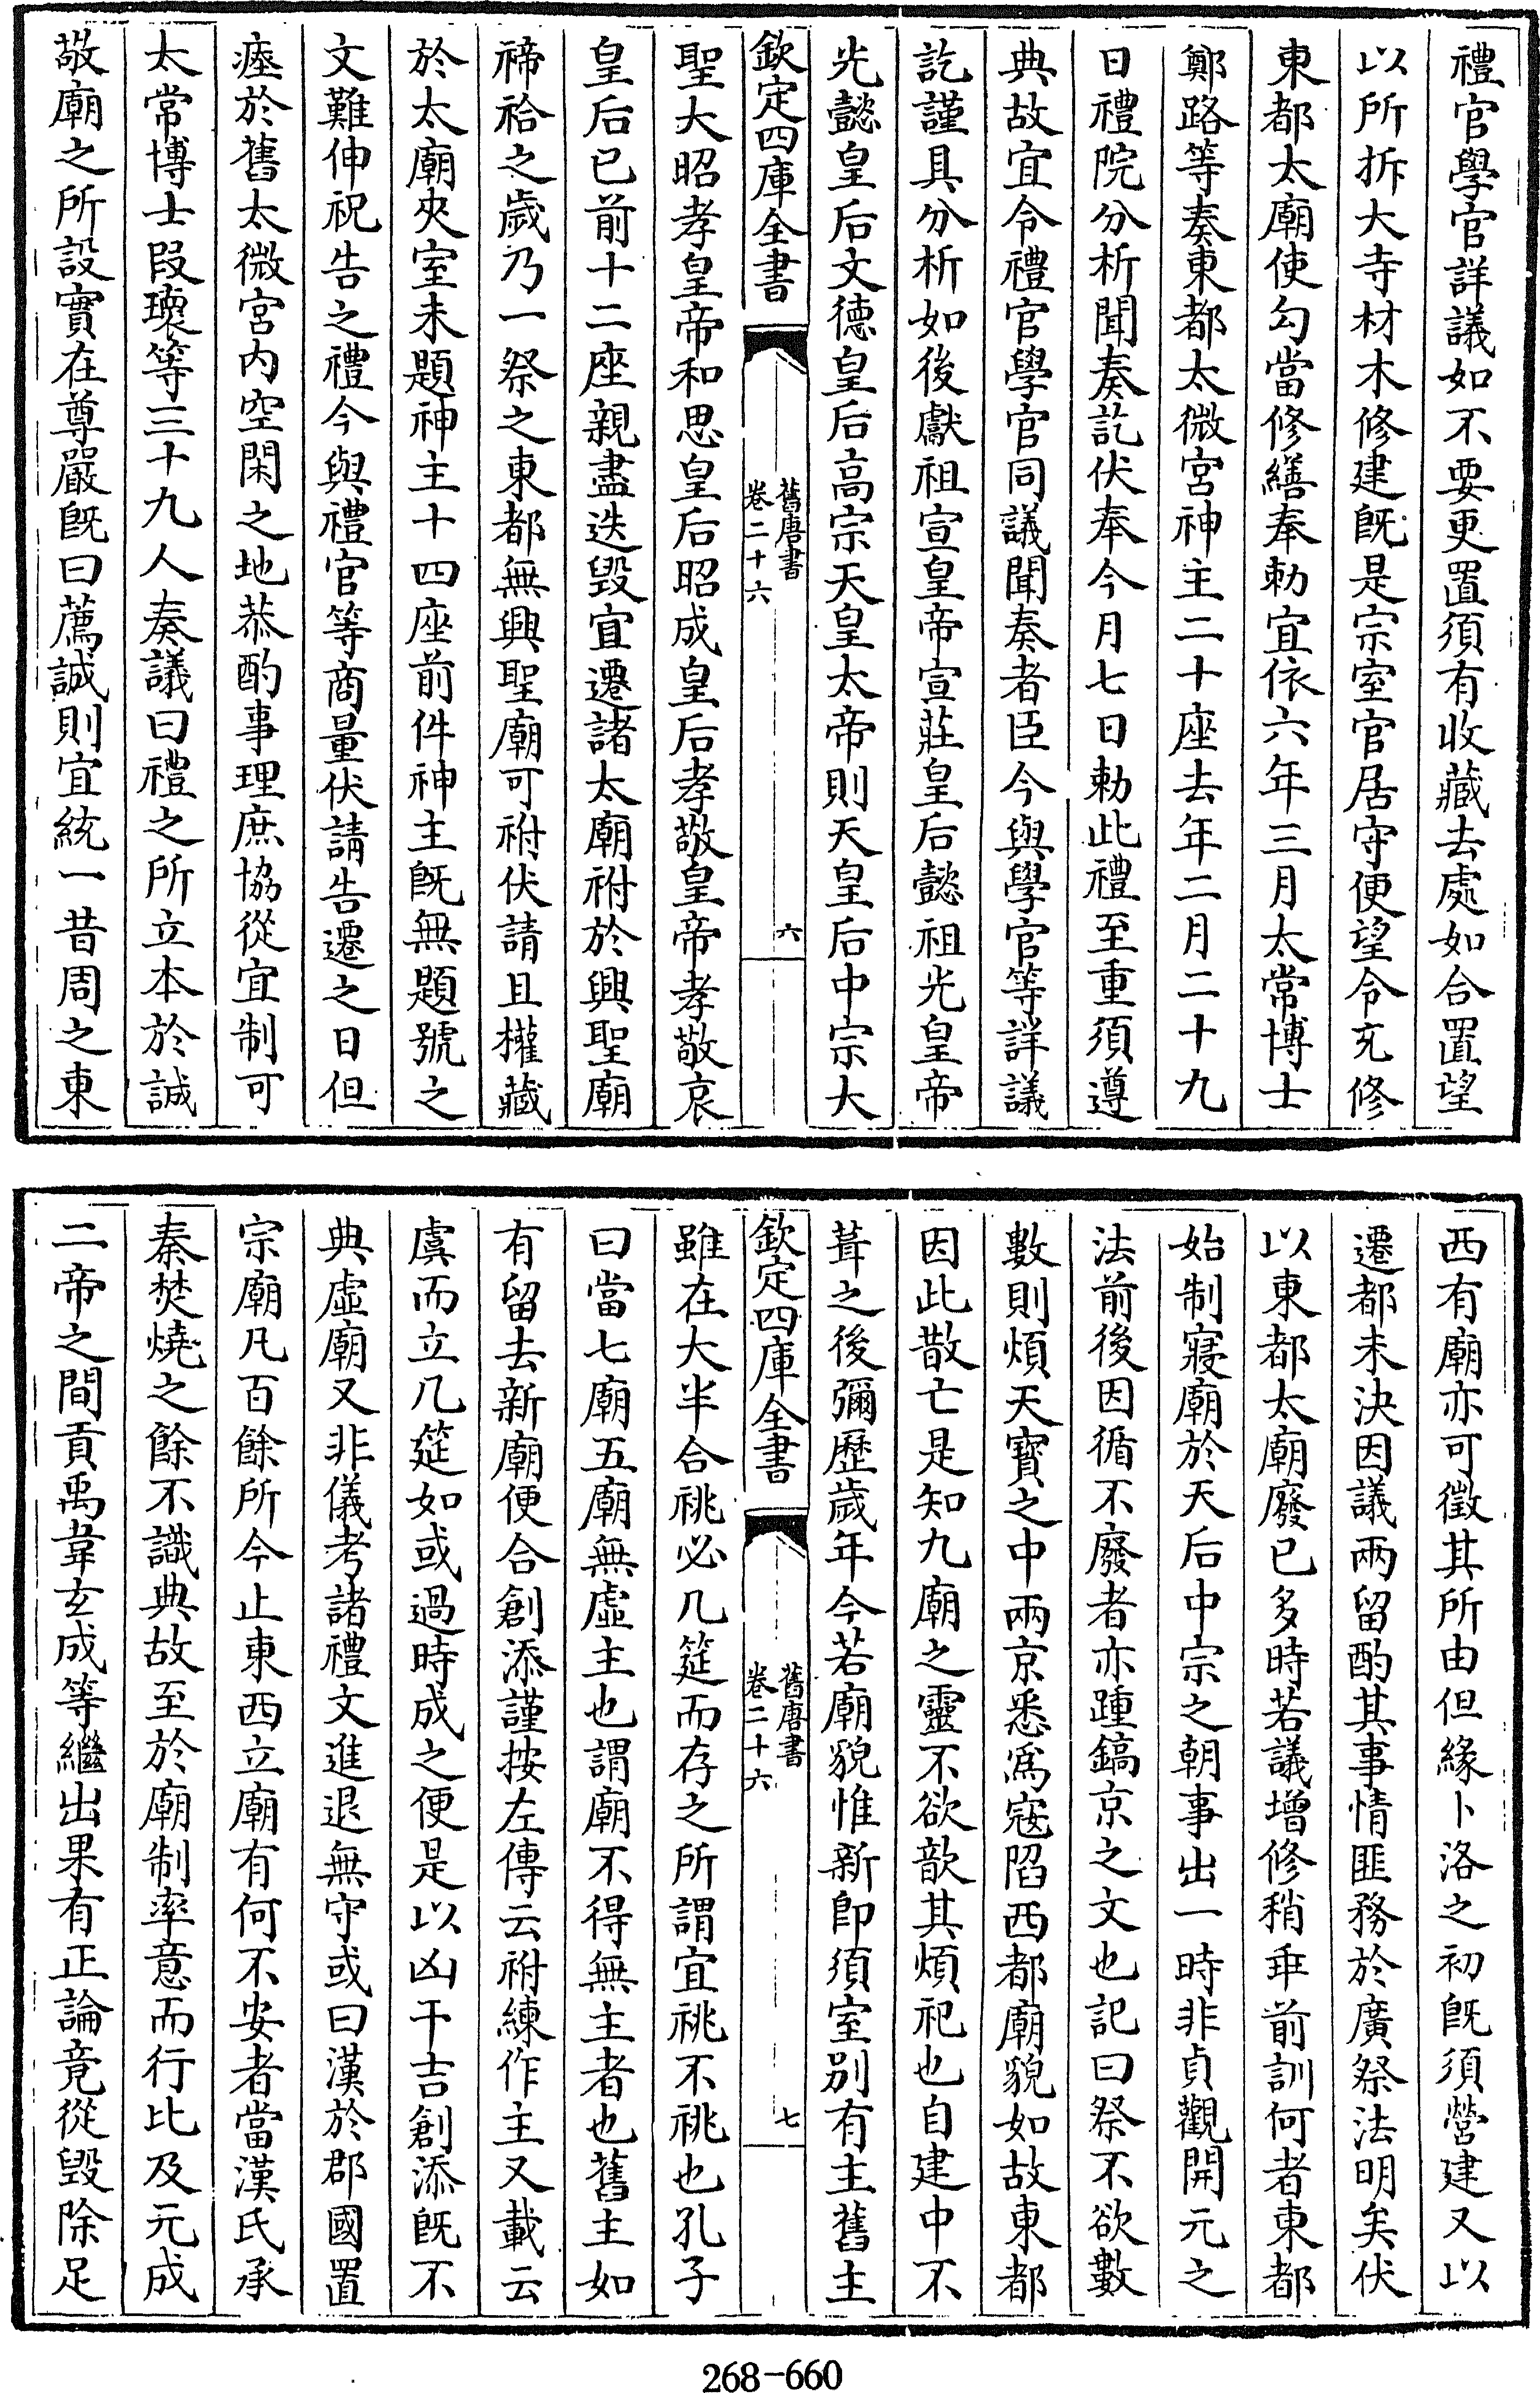 禮官學官詳議如不要更置須有收藏去處如合置望
以所拆大寺材木修建旣是宗室官居守便望令充修
東都太廟使勾當修繕奉勅宜依六年三月太常博士
鄭路等奏東都太微宮神主二十座去年二月二十九
日禮院分析聞奏訖伏奉今月七日勅此禮至重須遵
典故宜令禮官學官同議聞奏者臣今與學官等詳議
訖謹具分析如後獻祖宣皇帝宣莊皇后懿祖光皇帝
光懿皇后文德皇后高宗天皇太帝則天皇后中宗大
欽定四庫全書
舊唐書
卷二十六
六
聖大昭孝皇帝和思皇后昭成皇后孝敬皇帝孝敬哀
皇后已前十二座親盡迭毀宜遷諸太廟祔於興聖廟
禘祫之歲乃一祭之東都無興聖廟可祔伏請且權藏
於太廟夾室未題神主十四座前件神主旣無題號之
文難伸祝告之禮今與禮官等商量伏請告遷之日但
瘞於舊太微宮内空閑之地恭酌事理庶協從宜制可
太常博士段瓌等三十九人奏議曰禮之所立本於誠
敬廟之所設實在尊嚴旣曰薦誠則宜統一昔周之東
西有廟亦可徵其所由但緣卜洛之初旣須營建又以
遷都未決因議兩留酌其事情匪務於廣祭法明矣伏
以東都太廟廢已多時若議增修稍乖前訓何者東都
始制寢廟於天后中宗之朝事出一時非貞觀開元之
法前後因循不廢者亦踵鎬京之文也記曰祭不欲數
數則煩天寶之中兩京悉爲寇陷西都廟貌如故東都
因此散亡是知九廟之靈不欲歆其煩祀也自建中不
葺之後彌歷歲年今若廟貌惟新即須室別有主舊主
欽定四庫全書
舊唐書
卷二十六
七
雖在大半合祧必几筵而存之所謂宜祧不祧也孔子
曰當七廟五廟無虛主也謂廟不得無主者也舊主如
有留去新廟便合創添謹按左傳云祔練作主又載云
虞而立几筵如或過時成之便是以凶干吉創添旣不
典虛廟又非儀考諸禮文進退無守或曰漢於郡國置
宗廟凡百餘所今止東西立廟有何不安者當漢氏承
秦焚燒之餘不識典故至於廟制率意而行比及元成
二帝之間貢禹韋玄成等繼出果有正論竟從毀除足
268-660